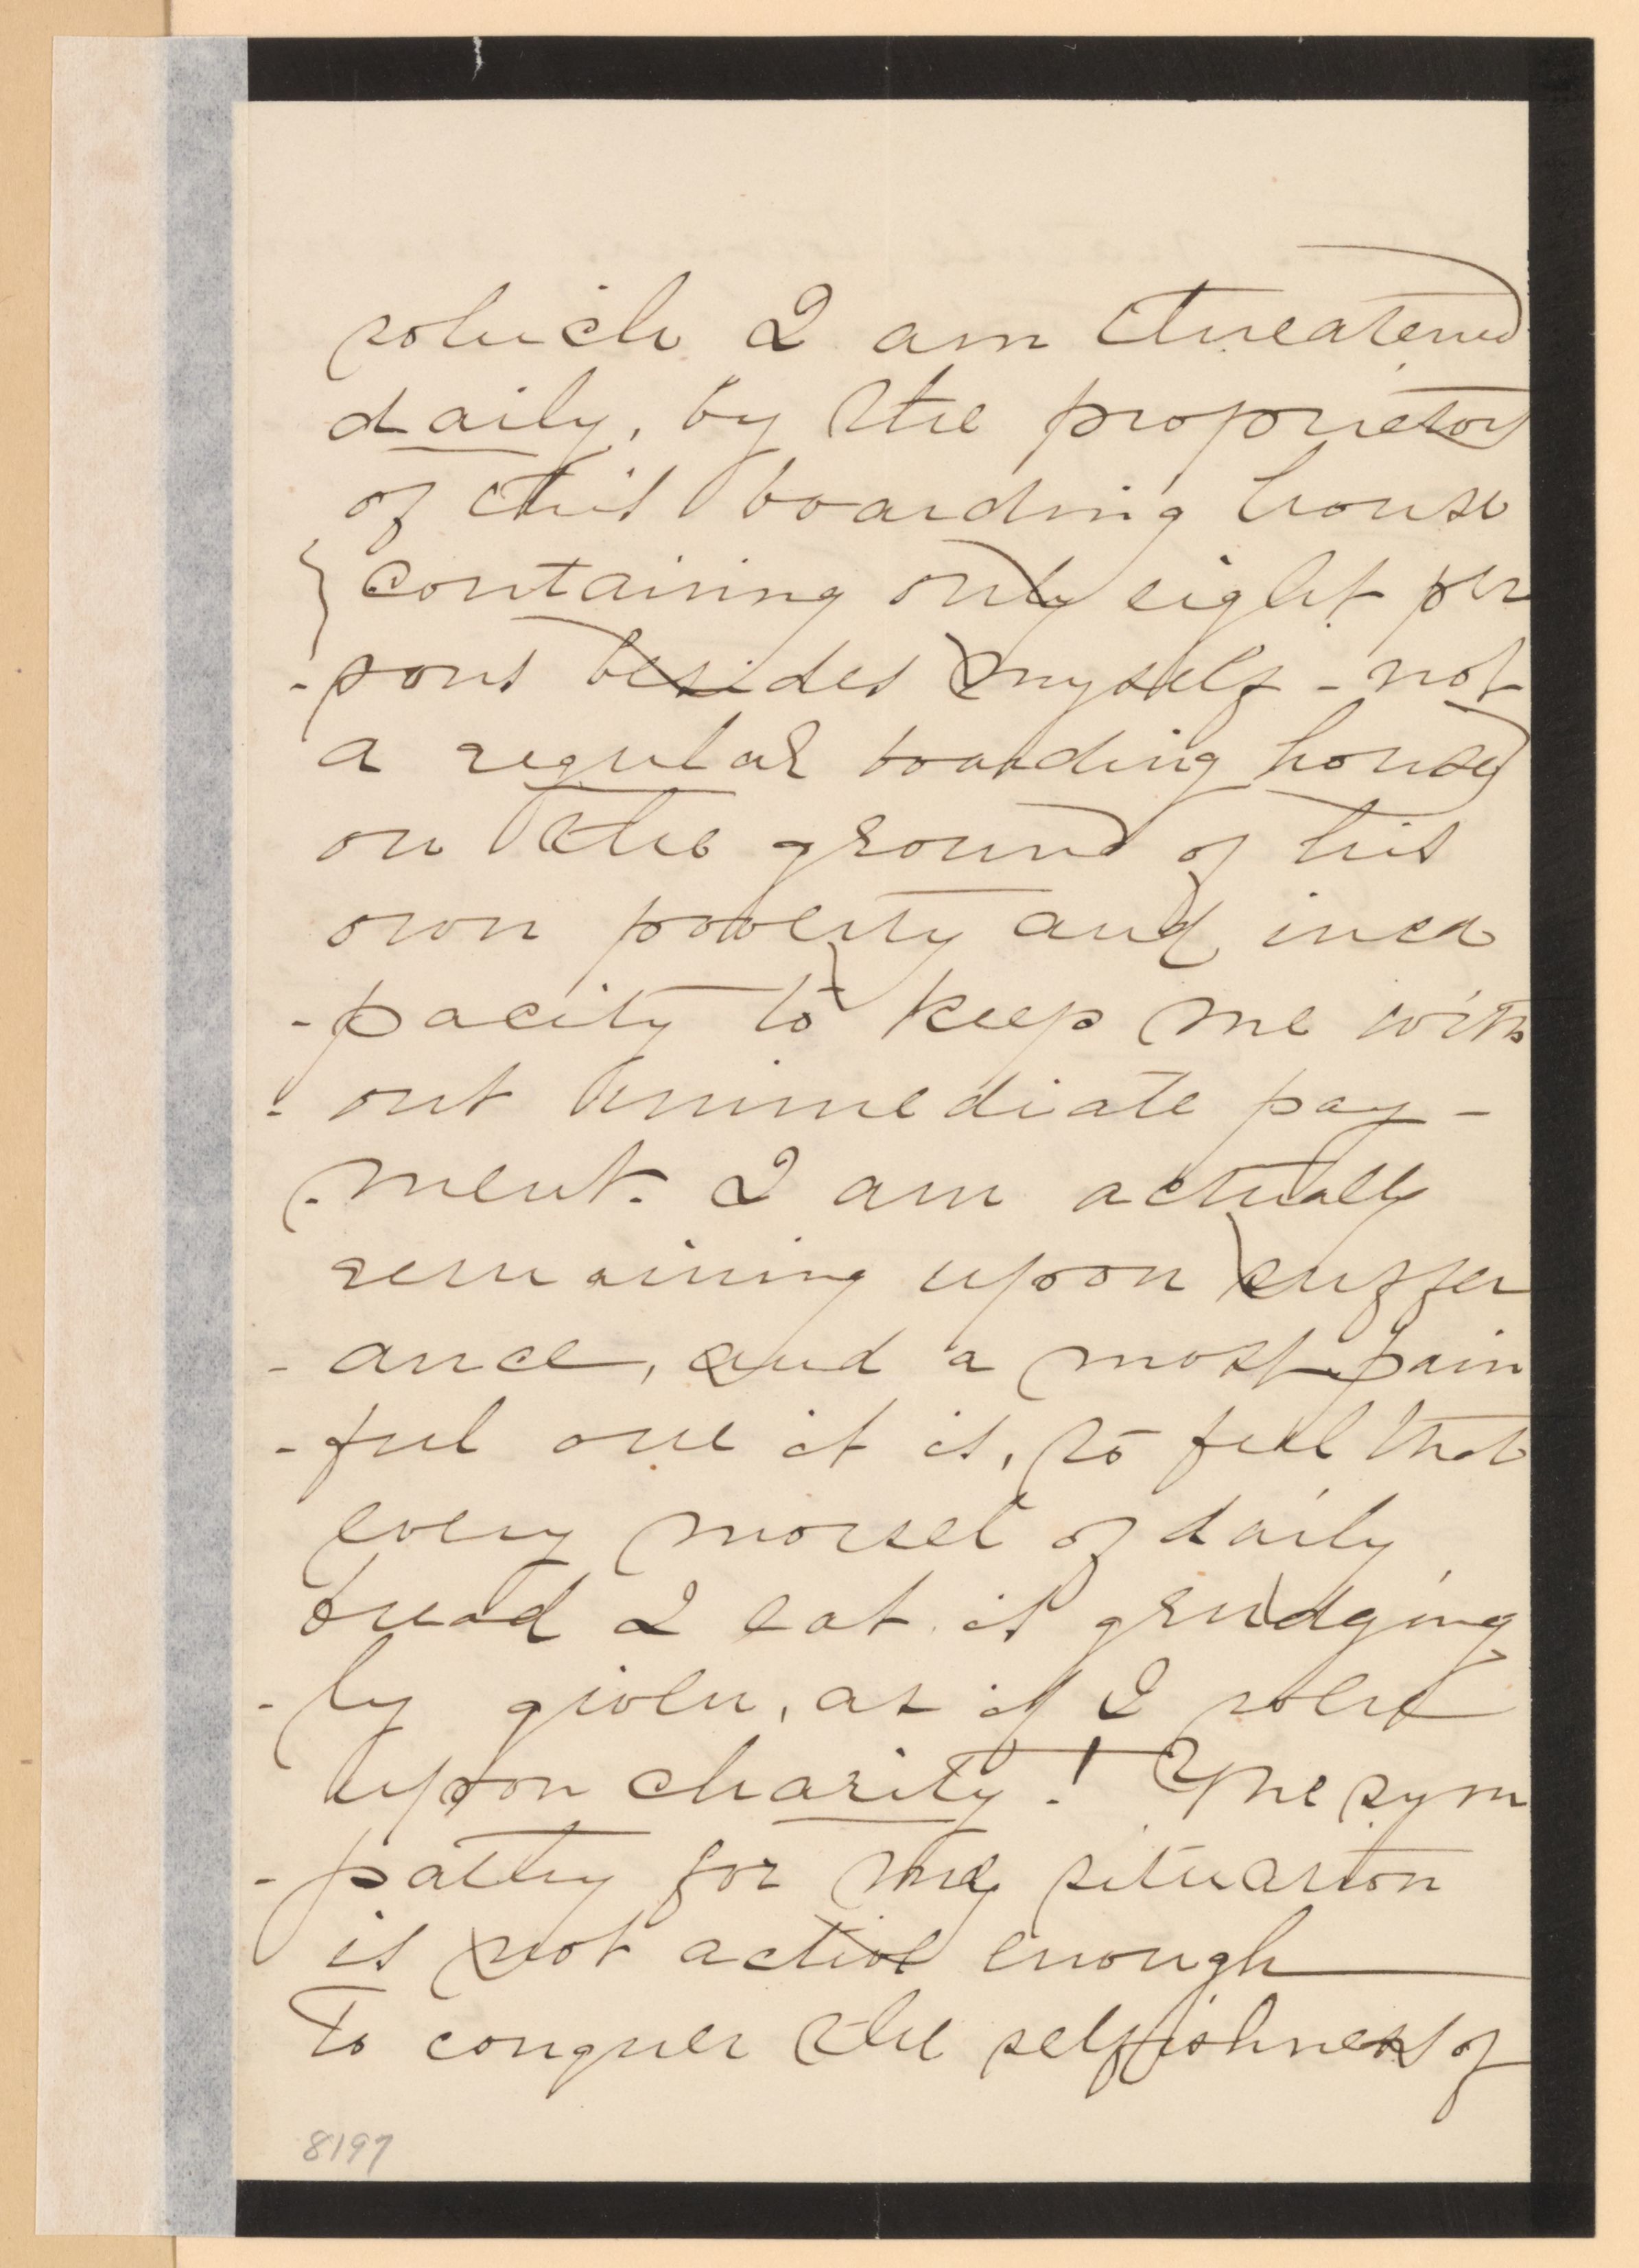 which I am threatened
daily, by the proprietor
of this boarding house
{containing only eight per
-sons besides myself - not
a regular boarding house)
on the ground of his
own poverty and inca
-pacity to keep me with
- out immediate pay -
-ment. I am actually
remaining upon suffer
- ance, and a most pain
-ful one it is, to feel that
every morsel of daily
bread I eat is grudging
-ly given, as if I were
upon charity! The sym
-pathy for my situation
is not active enough
To conquer the selfishness of
8197